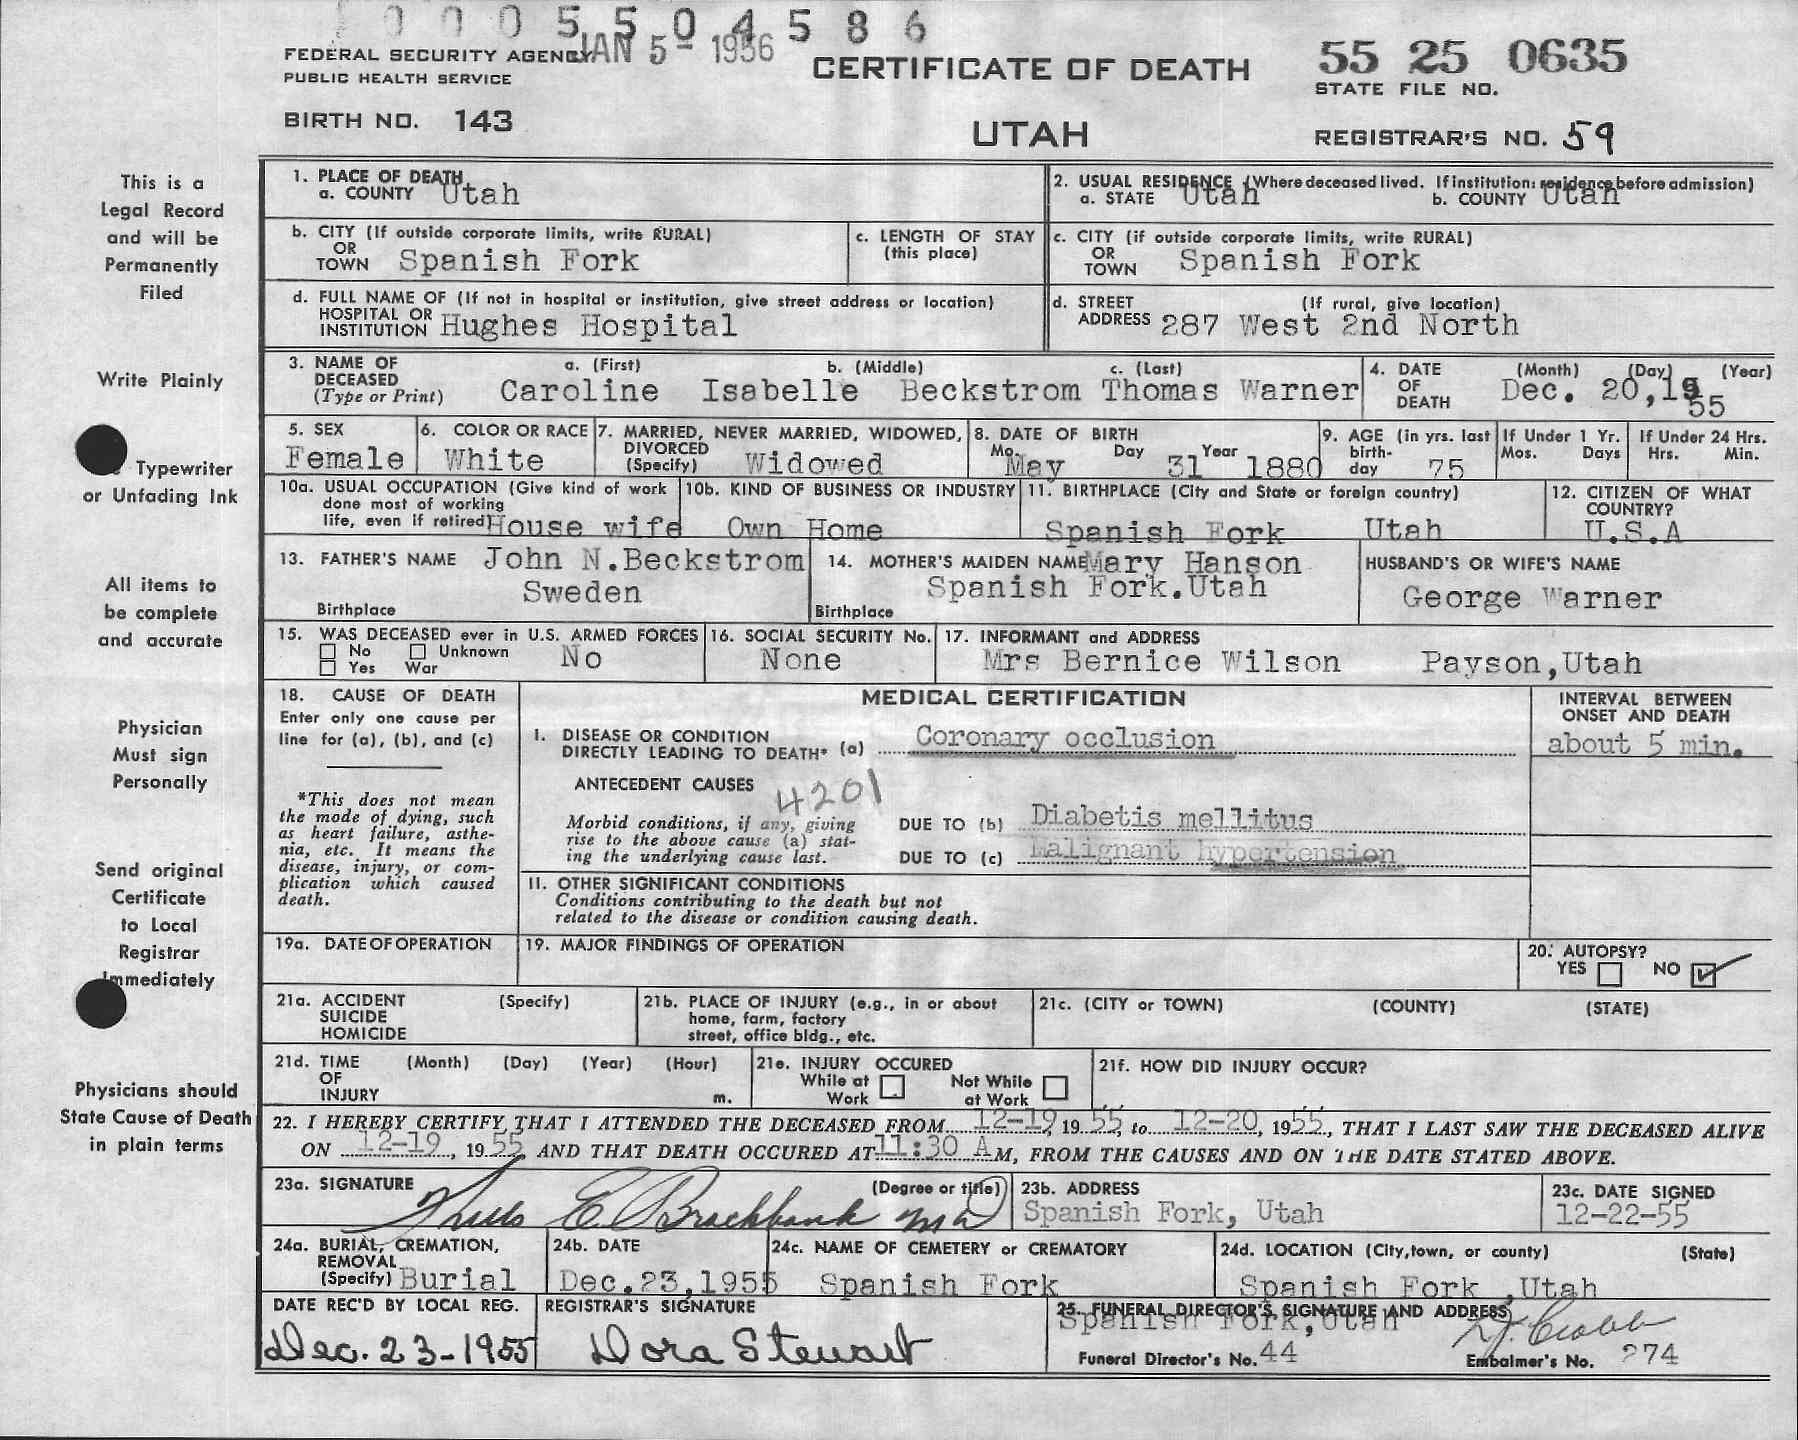 0 0 0 5 5 0 4 5 8 6
FEDERAL SECURITY AGENCY JAN 5 - 1956
PUBLIC HEALTH SERVICE
CERTIFICATE OF DEATH
55 25 0635
STATE FILE NO.
BIRTH NO. 143
UTAH
REGISTRAR'S NO. 59
This is a
Legal Record
and will be
Permanently
Filed
Write Plainly
Typewriter
or Unfading Ink
All items to
be complete
and accurate
Physician
Must sign
Personally
Send original
Certificate
to Local
Registrar
Immediately
Physicians should
State Cause of Death
in plain terms
1. PLACE OF DEATH
a. COUNTY Utah
2. USUAL RESIDENCE (Where deceased lived. If institution: residence before admission)
a. STATE Utah b. COUNTY Utah
b. CITY (If outside corporate limits, write RURAL)
OR
TOWN Spanish Fork
c. LENGTH OF STAY
(this place)
c. CITY (if outside corporate limits, write RURAL)
OR
TOWN Spanish Fork
d. FULL NAME OF (If not in hospital or institution, give street address or location)
HOSPITAL OR
INSTITUTION Hughes Hospital
d. STREET (If rural, give location)
ADDRESS 287 West 2nd North
3. NAME OF a. (First) b. (Middle) c. (Last)
DECEASED
(Type or Print) Caroline Isabelle Beckstrom Thomas Warner
4. DATE (Month) (Day) (Year)
OF
DEATH Dec. 20,1955
5. SEX
Female
6. COLOR OR RACE
White
7. MARRIED, NEVER MARRIED, WIDOWED,
DIVORCED
(Specify) Widowed
8. DATE OF BIRTH
Mo. Day Year
May 31 1880
9. AGE (in yrs. last
birth-
day 75
If Under 1 Yr.
Mos. Days
If Under 24 Hrs.
Hrs. Min.
10a. USUAL OCCUPATION (Give kind of work
done most of working
life, even if retired) House wife
10b. KIND OF BUSINESS OR INDUSTRY
Own Home
11. BIRTHPLACE (City and State or foreign country)
Spanish Fork Utah
12. CITIZEN OF WHAT
COUNTRY?
U.S.A
13. FATHER'S NAME John N.Beckstrom
Sweden
Birthplace
14. MOTHER'S MAIDEN NAME Mary Hanson
Spanish Fork.Utah
Birthplace
HUSBAND'S OR WIFE'S NAME
George Warner
15. WAS DECEASED ever in U.S. ARMED FORCES
No Unknown
Yes War
No
16. SOCIAL SECURITY No.
None
17. INFORMANT and ADDRESS
Mrs Bernice Wilson Payson,Utah
18. CAUSE OF DEATH
Enter only one cause per
line for (a), (b), and (c)
*This does not mean
the mode of dying, such
as heart failure, asthe-
nia, etc. It means the
disease, injury, or com-
plication which caused
death.
MEDICAL CERTIFICATION
INTERVAL BETWEEN
ONSET AND DEATH
about 5 min.
I. DISEASE OR CONDITION
DIRECTLY LEADING TO DEATH* (a) Coronary occlusion
ANTECEDENT CAUSES 4201
Morbid conditions, if any, giving
rise to the above cause (a) stat-
ing the underlying cause last.
DUE TO (b) Diabetis mellitus
DUE TO (c) Malignant hypertension
II. OTHER SIGNIFICANT CONDITIONS
Conditions contributing to the death but not
related to the disease or condition causing death.
19a. DATE OF OPERATION
19. MAJOR FINDINGS OF OPERATION
20. AUTOPSY?
YES NO
21a. ACCIDENT (Specify)
SUICIDE
HOMICIDE
21b. PLACE OF INJURY (e.g., in or about
home, farm, factory
street, office bldg., etc.
21c. (CITY or TOWN) (COUNTY) (STATE)
21d. TIME (Month) (Day) (Year) (Hour)
OF
INJURY m.
21e. INJURY OCCURED
While at Not While
Work at Work
21f. HOW DID INJURY OCCUR?
22. I HEREBY CERTIFY THAT I ATTENDED THE DECEASED FROM 12-19, 19 55, to 12-20, 1955, THAT I LAST SAW THE DECEASED ALIVE
ON 12-19, 19 55, AND THAT DEATH OCCURED AT 11:30 A M, FROM THE CAUSES AND ON THE DATE STATED ABOVE.
23a. SIGNATURE (Degree or title)
E. Brockbank MD
23b. ADDRESS
Spanish Fork, Utah
23c. DATE SIGNED
12-22-55
24a. BURIAL, CREMATION,
REMOVAL
(Specify) Burial
24b. DATE
Dec.23,1955
24c. NAME OF CEMETERY or CREMATORY
Spanish Fork
24d. LOCATION (City,town, or county) (State)
Spanish Fork ,Utah
DATE REC'D BY LOCAL REG.
Dec. 23-1955
REGISTRAR'S SIGNATURE
Dora Stewart
25. FUNERAL DIRECTOR'S SIGNATURE AND ADDRESS
Spanish Fork,Utah
Funeral Director's No. 44
Embalmer's No. 274